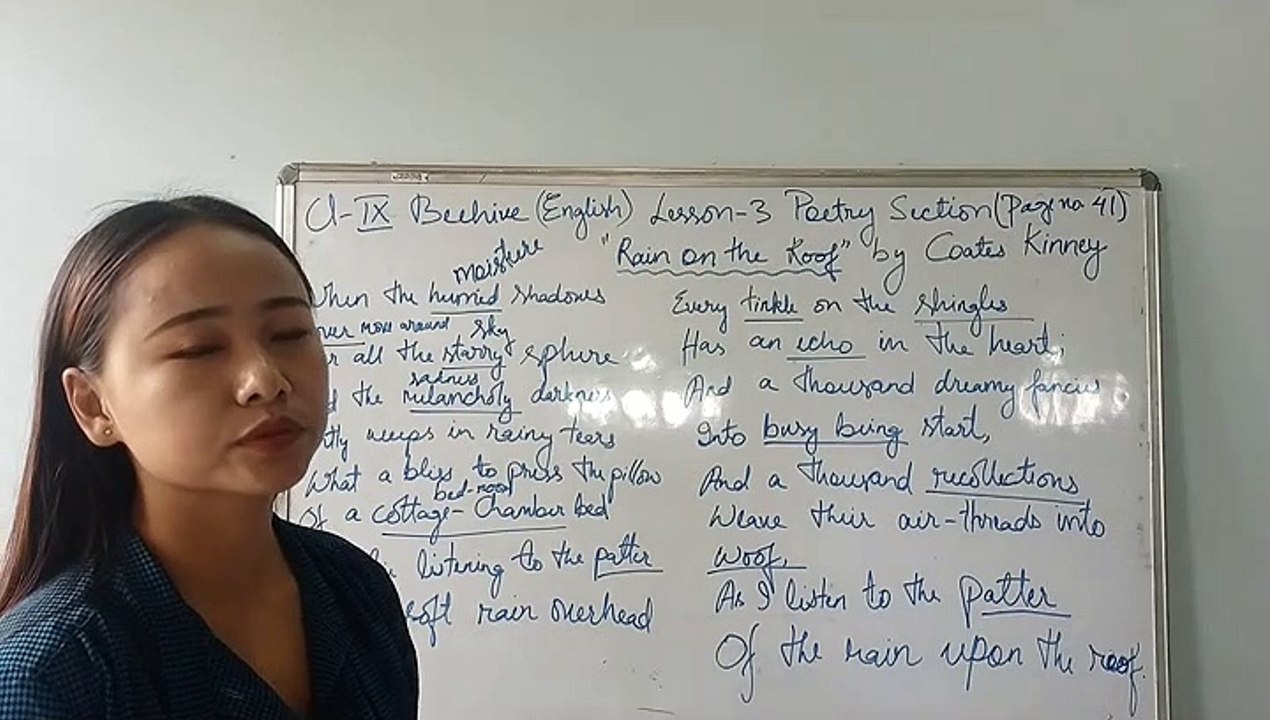 Cl-IX Beehive (English) Lesson-3 Poetry Section (Page no 41)
"Rain on the Roof" by Coates Kinney
moisture
When the humid shadows
hover move around sky
all the starry sphere
sadness
the melancholy darkness
weeps in rainy tears
What a bliss to press the pillow
bed-room
Of a cottage-chamber bed
listening to the patter
soft rain overhead
Every tinkle on the shingles
Has an echo in the heart;
And a thousand dreamy fancies
Into busy being start,
And a thousand recollections
Weave their air-threads into
woof,
As I listen to the patter
Of the rain upon the roof.